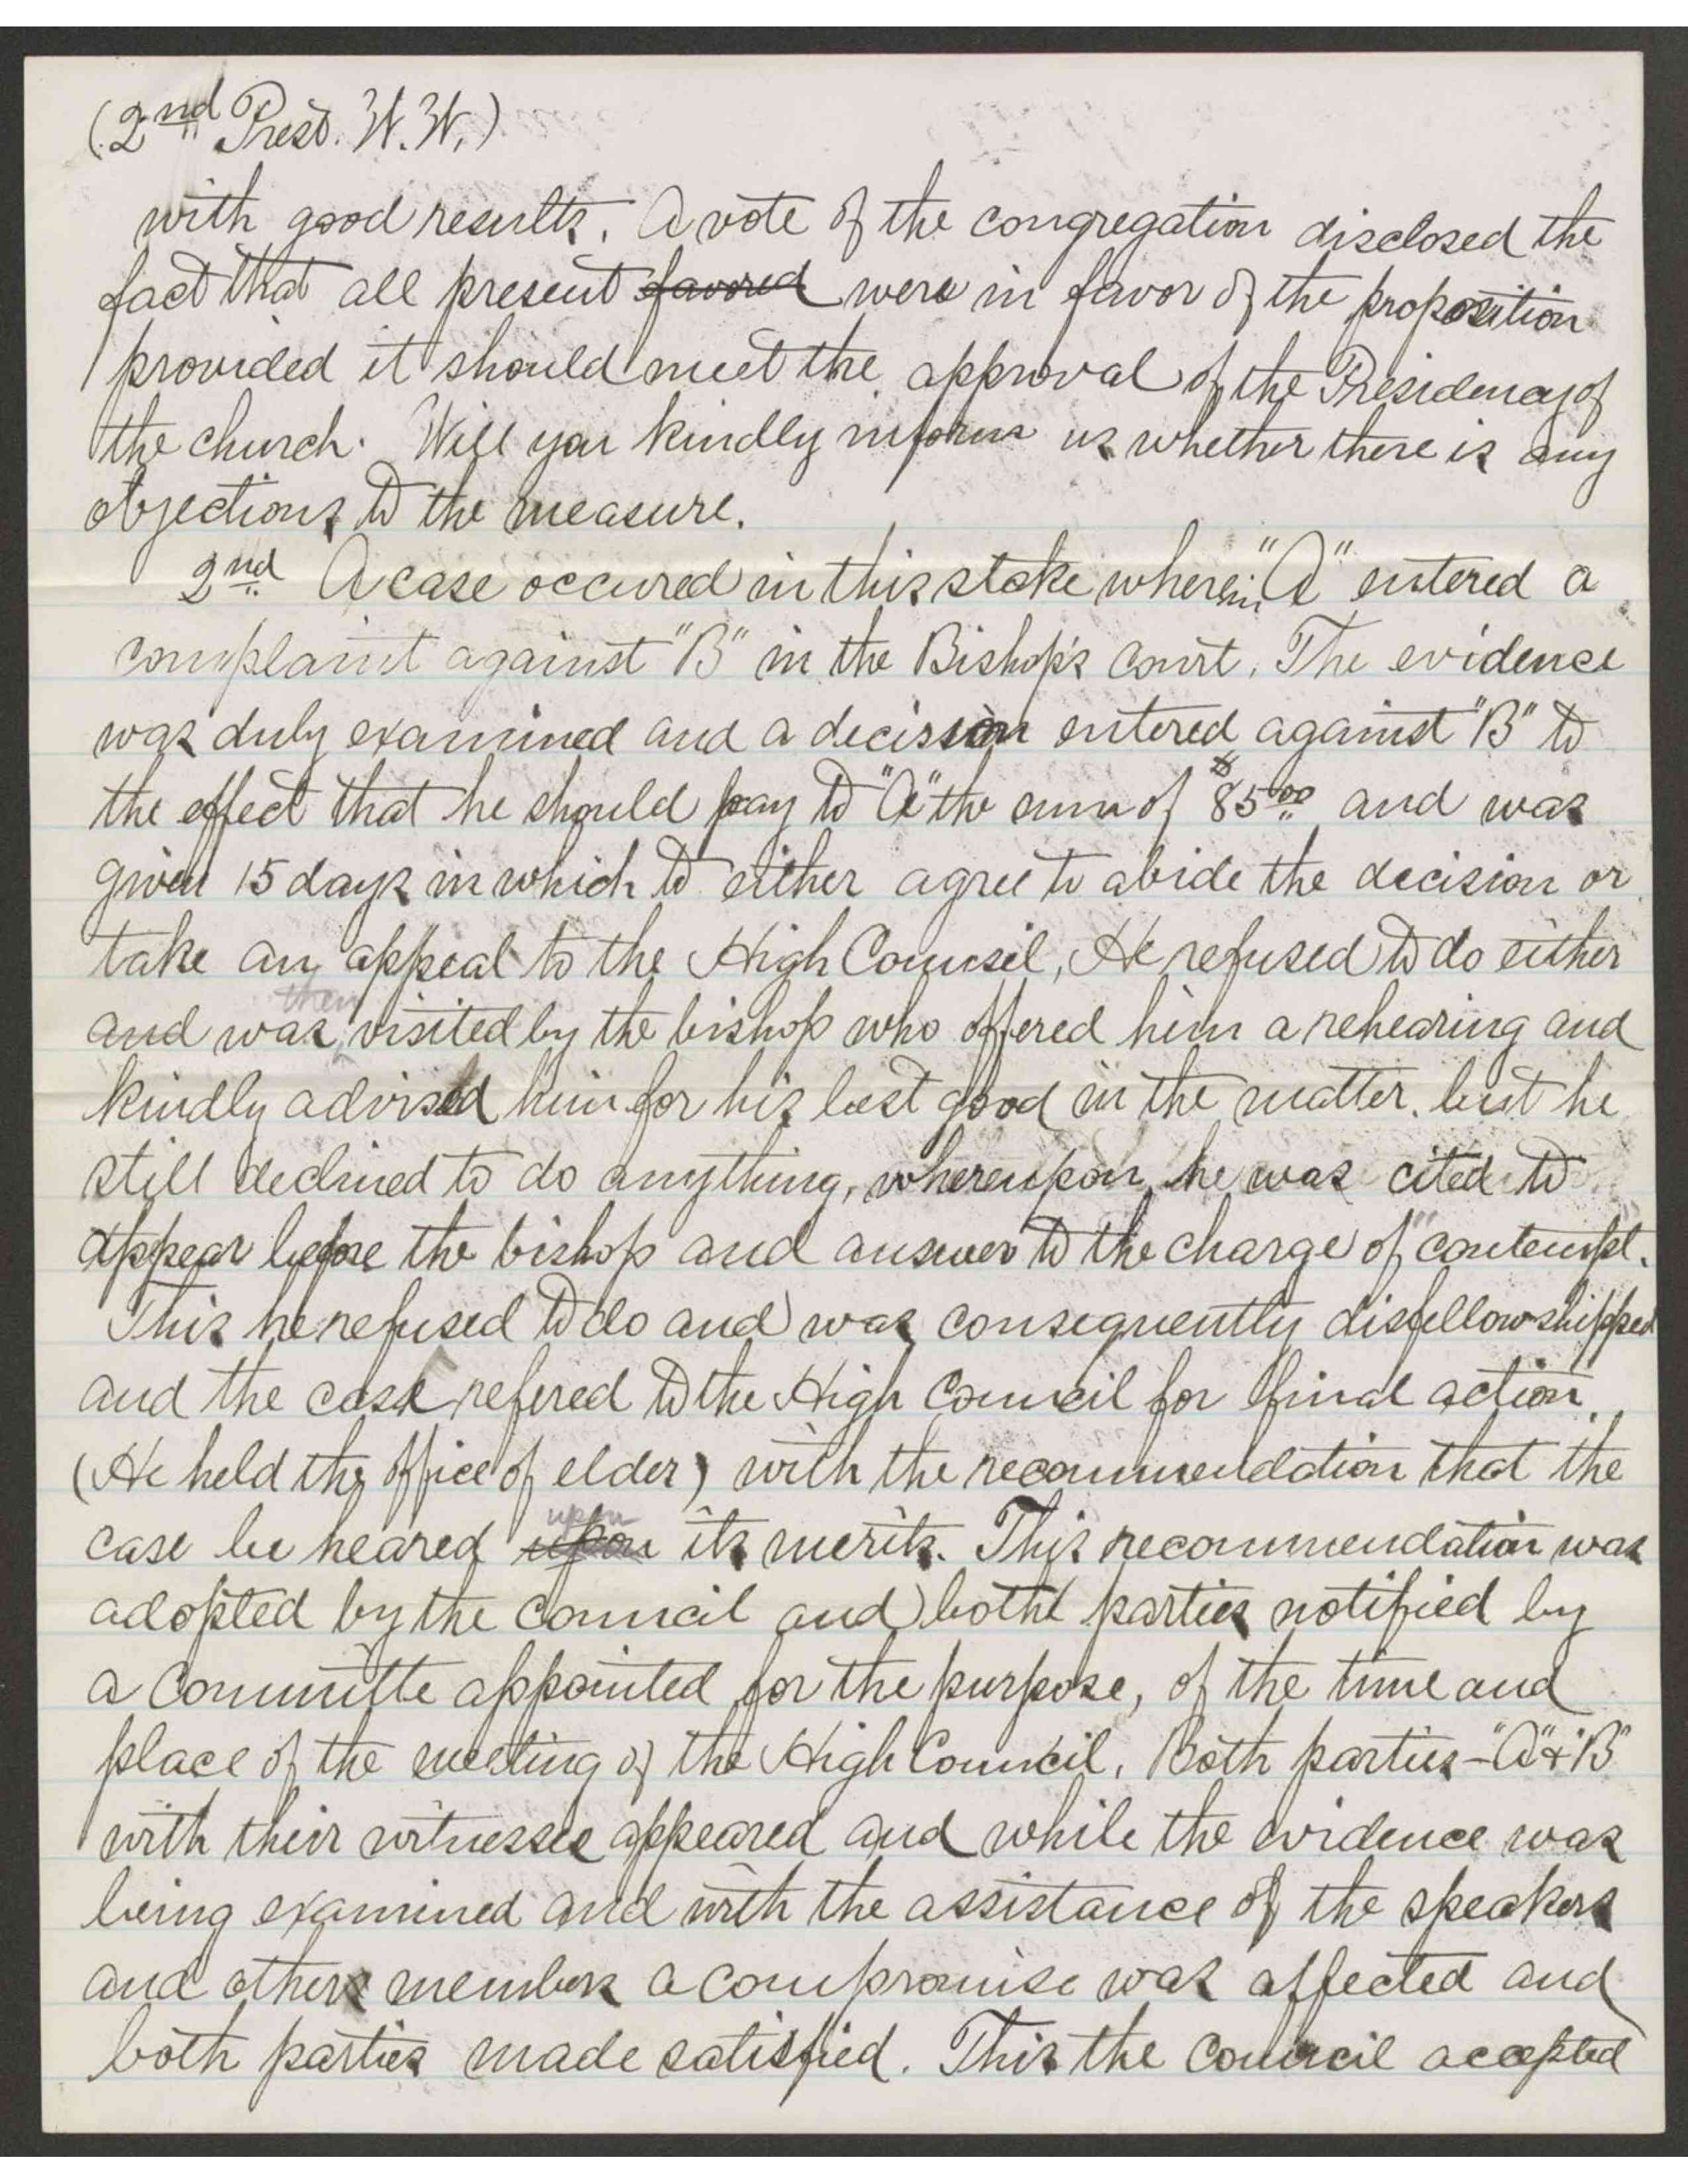 (2nd Prest. W. W.)
with good results. A vote of the congregation disclosed the
fact that all present favored were in favor of the proposition
provided it should meet the approval of the Presidency of
the church. Will you kindly inform us whether there is any
objections to the measure.
2nd A case occured in this stake wherein "A" entered a
complaint against "B" in the Bishop's court. The evidence
was duly examined and a decision entered against "B" to
the effect that he should pay to "A" the sum of $85.00 and was
given 15 days in which to either agree to abide the decision or
take an appeal to the High Counsil, He refused to do either
then
and was visited by the bishop who offered him a rehearing and
kindly advised him for his best good in the matter. but he
still declined to do anything, whereupon he was cited to
appear before the bishop and answer to the charge of "contempt.
This he refused to do and was consequently disfellowshipped
and the case refered to the High Council for final action
(He held the office of elder) with the recommendation that the
upon
case be heared upon its merits. This recommendation was
adopted by the council and both parties notified by
a Committe appointed for the purpose, of the time and
place of the meeting of the High Council. Both parties - "A" & "B"
with their witnesses appeared and while the evidence was
being examined and with the assistance of the speakers
and others members a compromise was affected and
both parties made satisfied. This the council accepted